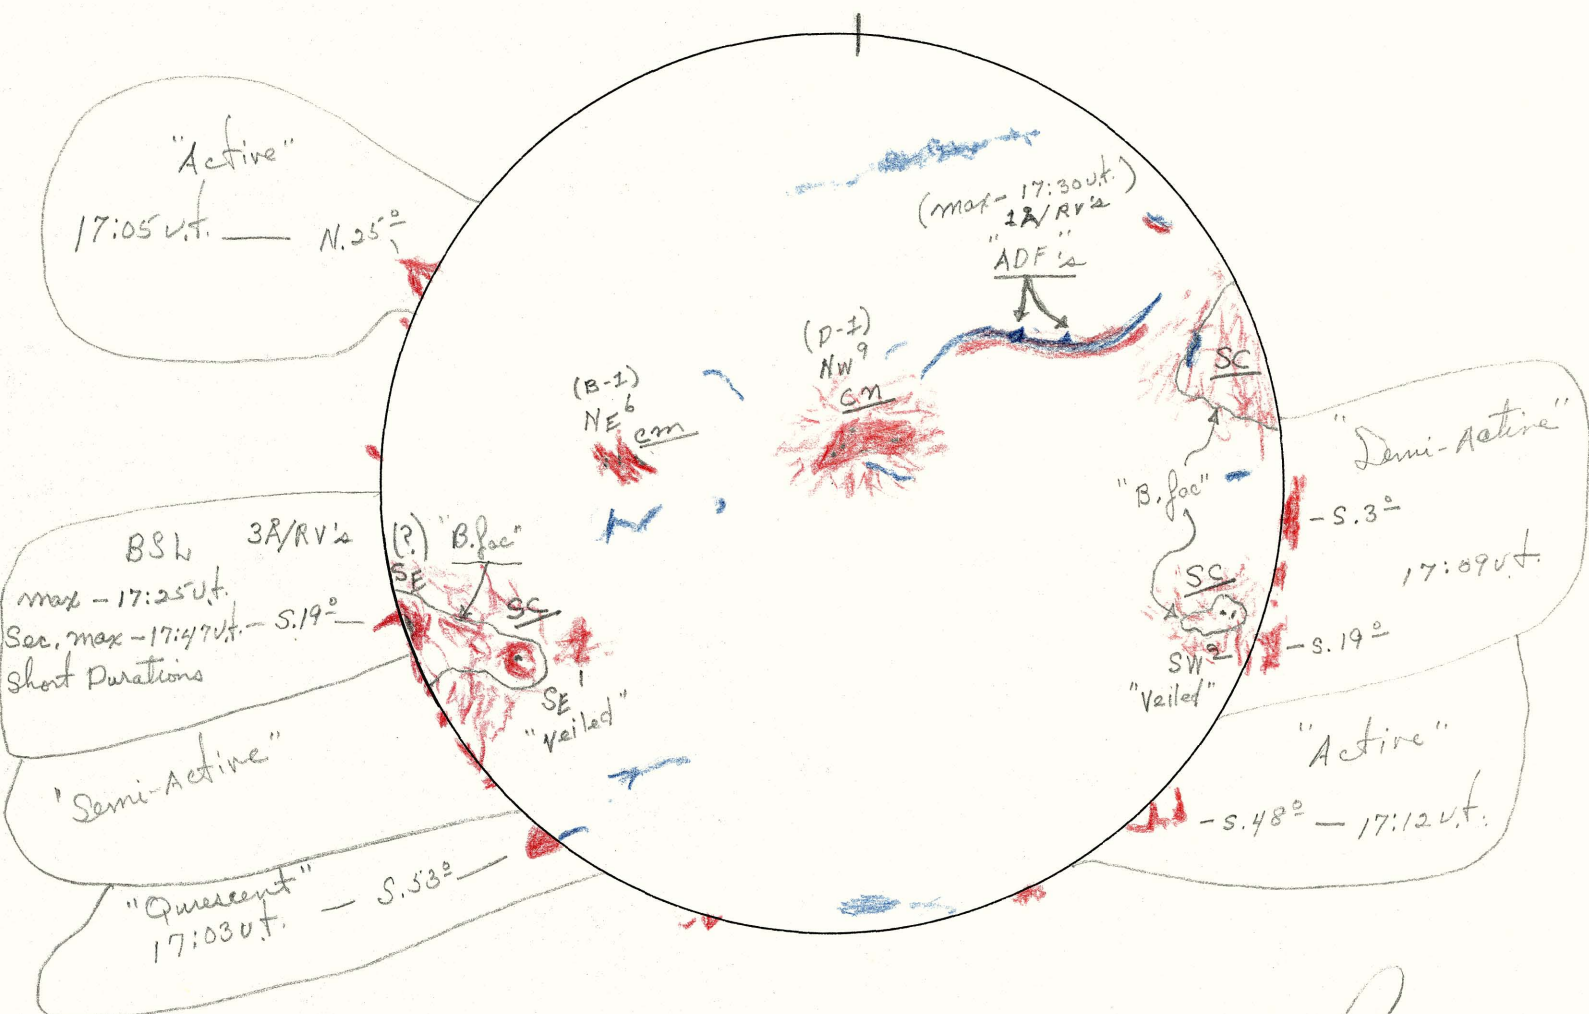 "Active"
17:05 u.t. — N.25°
(max - 17:30 u.t.)
1Å/RV's
"ADF"'s
(D-I)
NW 9
cm
(B-I)
NE 6
cm
SC
"Semi-Active"
"B.fac"
- S.3°
17:09 u.t.
SC
- S.19°
SW 2
"Veiled"
BSL 3Å/RV's
max - 17:25 u.t.
Sec. max - 17:47 u.t. - S.19° —
Short Durations
(?) "B.fac"
SE
SC
SE 1
"Veiled"
"Semi-Active"
"Active"
- S.48° — 17:12 u.t.
"Quiescent" — S.53° —
17:03 u.t.